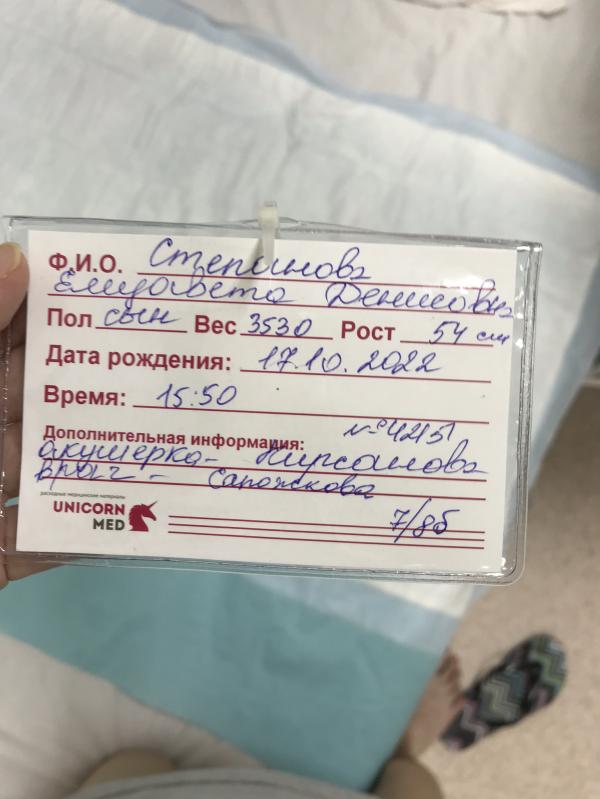 Ф.И.О. Степанова
Елизавета Денисовна
Пол сын Вес 3530 Рост 54 см
Дата рождения: 17.10.2022
Время: 15:50
Дополнительная информация: №4245
акушерка - Кирсанова
врач - Сапожкова
расходные медицинские материалы
UNICORN
MED
7/8б